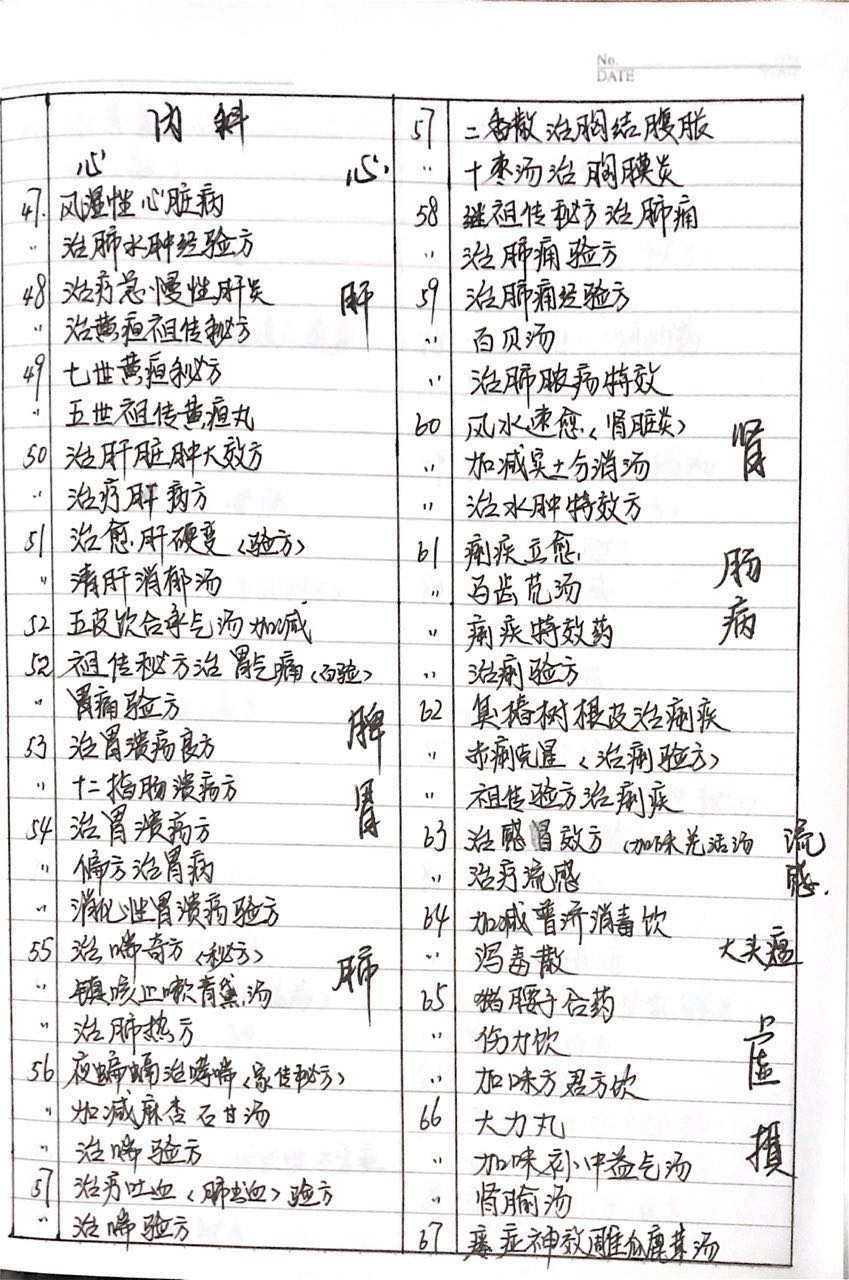 No.
DATE
内科
心 心
47. 风湿性心脏病
〃 治肺水肿经验方
48 治疗急.慢性肝炎 肝
〃 治黄疸祖传秘方
49 七世黄疸秘方
〃 五世祖传黄疸丸
50 治肝脏肿大效方
〃 治疗肝病方
51 治愈肝硬变(验方)
〃 清肝消郁汤
52 五皮饮合承气汤加减
52 祖传秘方治胃气痛(百验)
〃 胃痛验方
脾
53 治胃溃疡良方
〃 十二指肠溃疡方
胃
54 治胃溃疡方
〃 偏方治胃病
〃 消化性胃溃疡验方
55 治喘奇方(秘方)
肺
〃 镇咳止嗽青黛汤
〃 治肺热方
56 夜蝙蝠治哮喘(家传秘方)
〃 加减麻杏石甘汤
〃 治喘验方
57 治疗吐血(肺出血)验方
〃 治喘验方
57 二香散治胸结腹胀
〃 十枣汤治胸膜炎
58 继祖传秘方治肺痈
治肺痈验方
59 治肺痈经验方
〃 百贝汤
〃 治肺脓疡特效
60 风水速愈(肾脏炎)
肾
〃 加减实土分消汤
〃 治水肿特效方
61 痢疾立愈
肠病
〃 马齿苋汤
〃 痢疾特效药
〃 治痢验方
62 臭椿树根皮治痢疾
〃 赤痢克星(治痢验方)
〃 祖传验方治痢疾
63 治感冒效方(加味羌活汤
流感.
〃 治疗流感
64 加减普济消毒饮
大头瘟
〃 泻毒散
65 猪腰子合药
〃 伤力饮
虚损
〃 加味方君方饮
66 大力丸
〃 加味补中益气汤
〃 肾腧汤
67